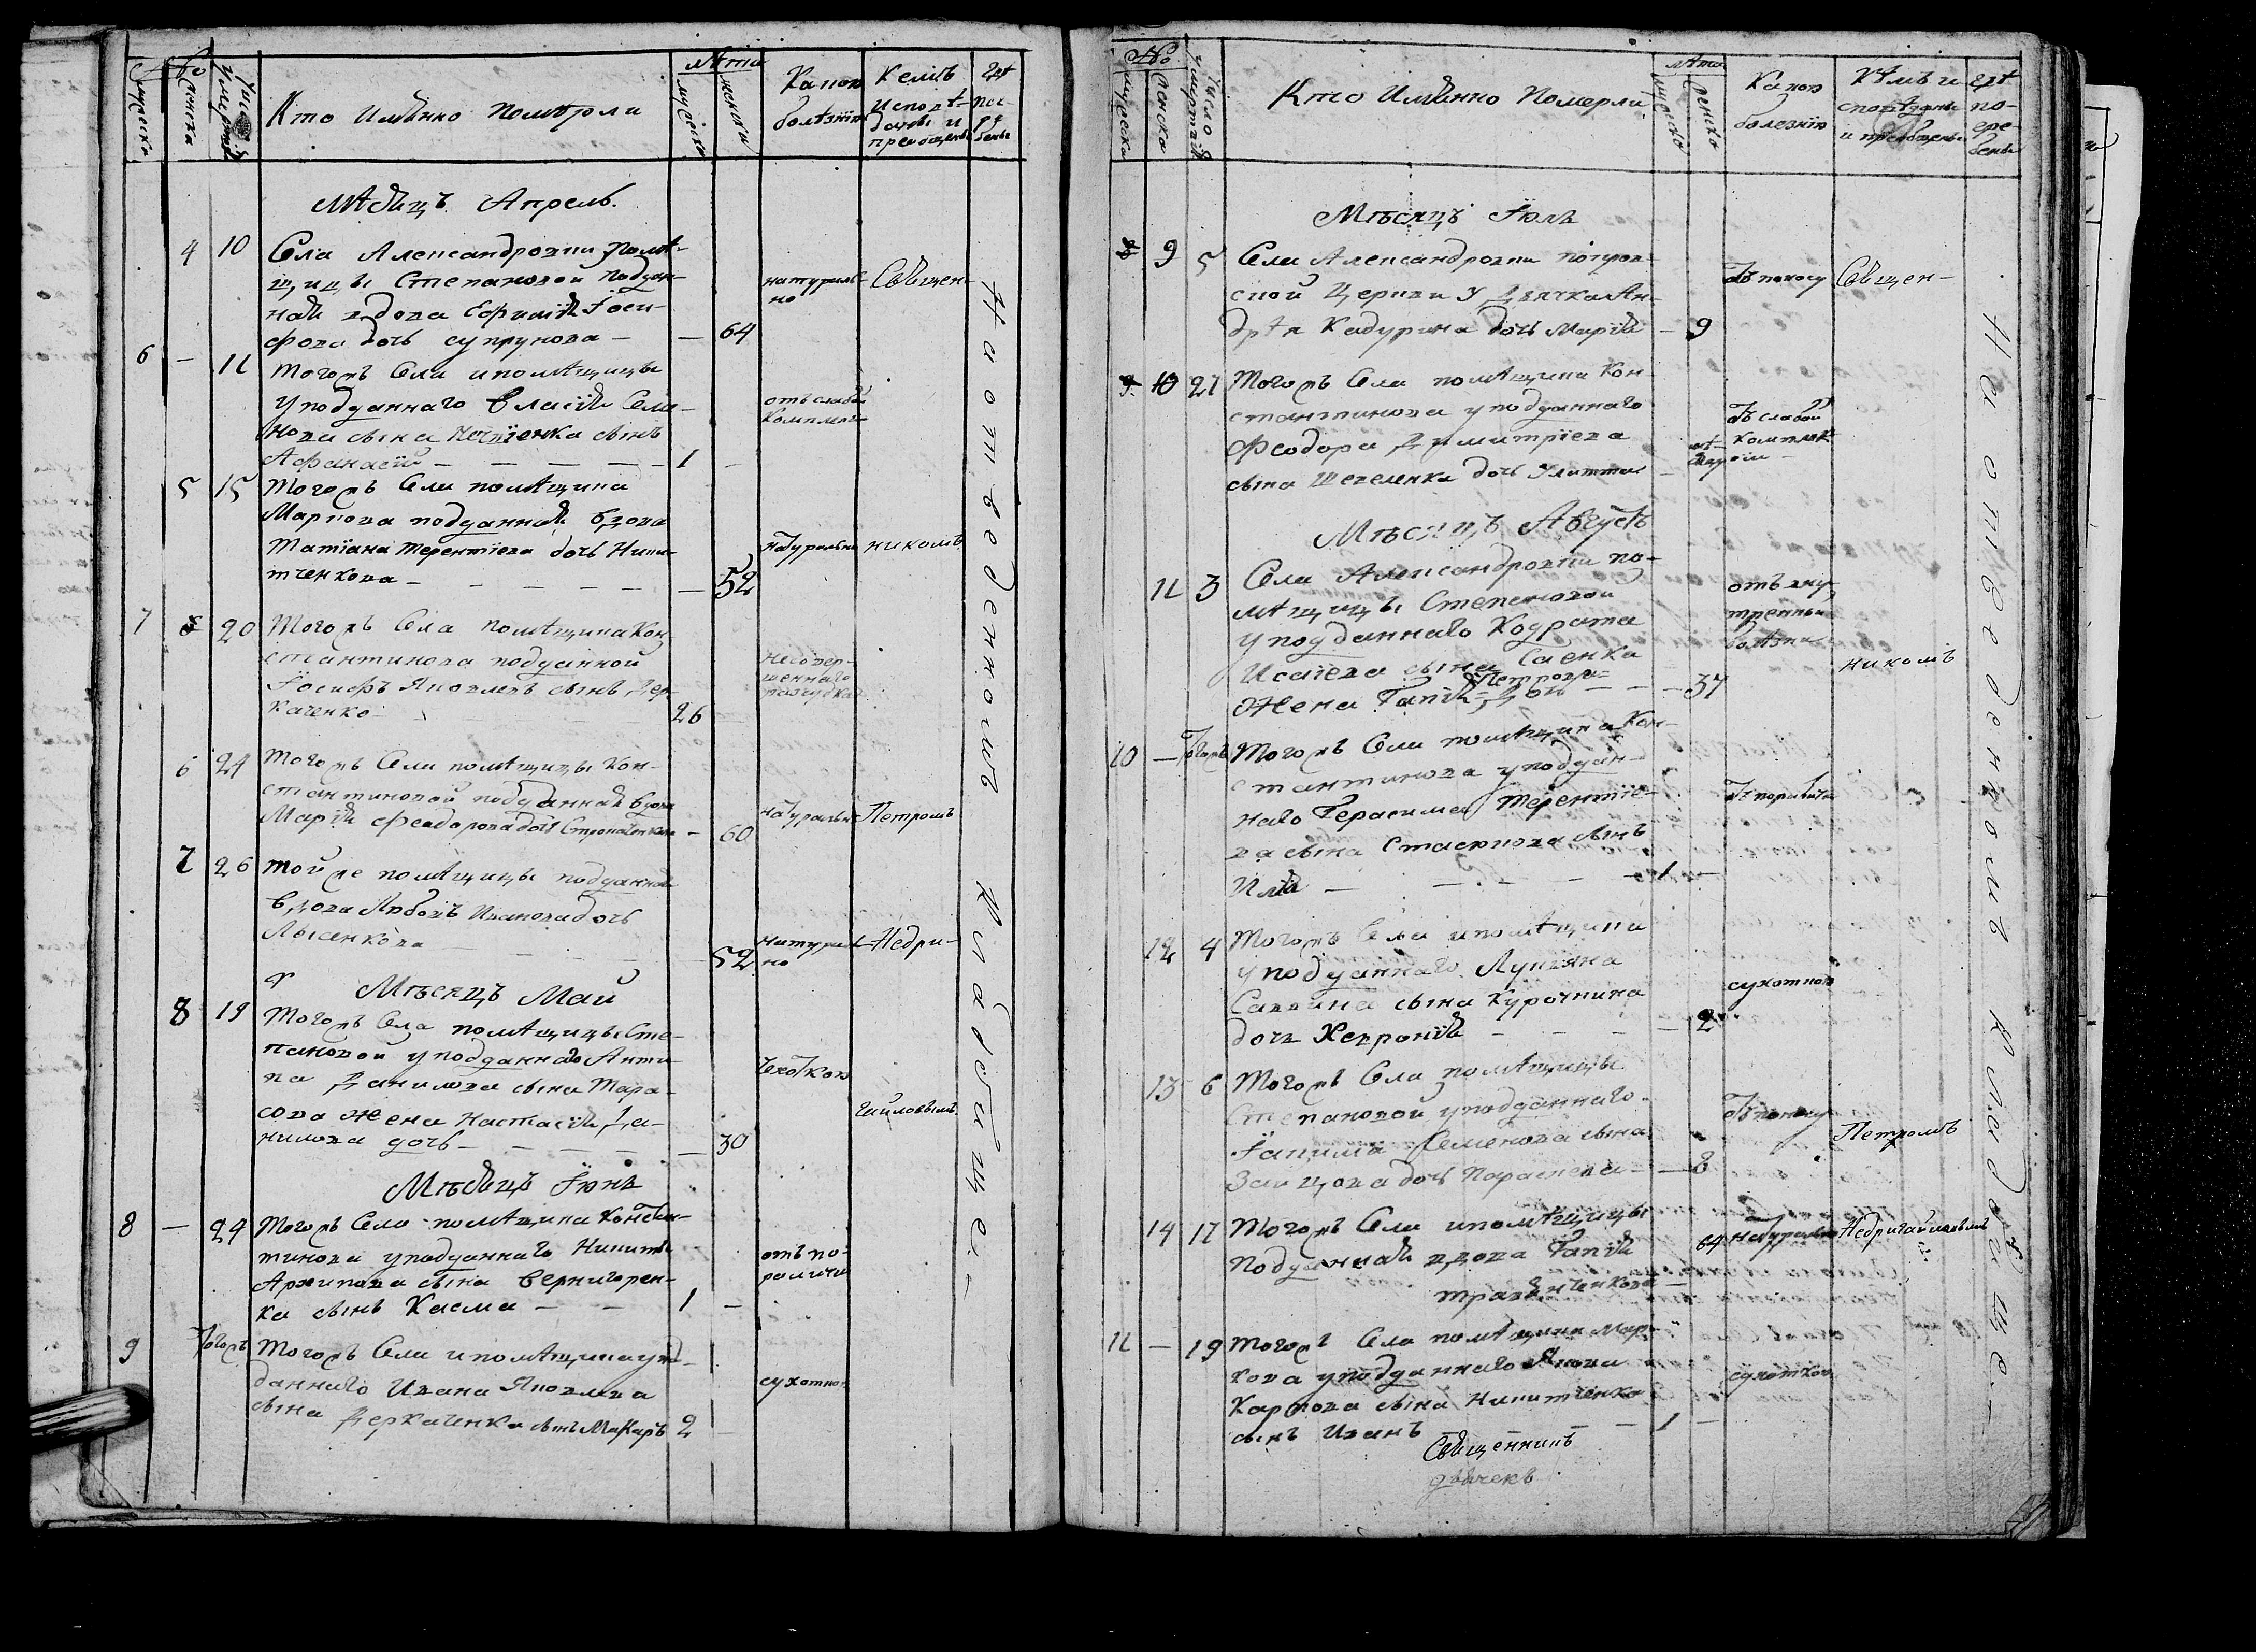 №
мужеска
женска
число умертвiй
Кто имѣнно померли
лѣта
мужеска
женска
Какою болѣзнiю
Кемъ исповѣданы и преобщены
гдѣ погребены
Мѣсяцъ Апрель
4 10 Села Александровки помѣ-
щицы Степановой поддан-
ная вдова Ефимiя Iоси-
фова дочь супрунова — — 64
натураль-
но
Священ-
6 — 11 Тогожъ Села и помѣщицы
у подданнаго Власiя Семе-
нова сына сынъ
Афанасiй — — — — — 1 —
отъ слабой
комплекцiи
5 15 Тогожъ Села помѣщика
Маркова подданная вдова
Татiана Терентiева дочь Ники-
тченкова — — — — — — 52
натурально
никомъ
7 20 Тогожъ Села помѣщика Кон-
стантинова подданной
Iосифъ Яковлевъ сынъ Дер-
каченко — 26
6 24 Тогожъ Села помѣщицы Кон-
стантиновой подданная вдова
Марiя Феодорова дочь — 60
натурально
Петромъ
7 26 Той же помѣщицы подданная
вдова Любовь Иванова дочь
Лысенкова — — — — 52
натураль-
но
Недри-
Мѣсяцъ Май
8 19 Тогожъ Села помѣщицы Сте-
пановой у подданнаго Анти-
па Данилова сына Тара-
сова жена Настасiя Да-
нилова дочь — — — — — 30
Чехоткою
гайловымъ
Мѣсяцъ Iюнь
8 — 24 Тогожъ Села помѣщика Констан-
тинова у подданнаго Никиты
Архипова сына Вернигорен-
ка сынъ Касма — — 1 —
отъ по-
ролича
9 Тогожъ Тогожъ Села и помѣщика у под-
даннаго Ивана Яковлева
сына Деркаченка сынъ Макаръ 2 —
сухотною
На отведенномъ кладбище —
№
мужеска
женска
число умертвiй
Кто имѣнно померли
лѣта
мужеско
женско
Какою болезнiю
Кѣмъ и споведаны и преобщены
гдѣ погребены
Мѣсяцъ Iюль
8 9 5 Села Александровки покров-
ской Церкви у Дьячка Ан-
дрѣя Кадурина дочь Марiя — 9
отъ поносу
Священ-
9 10 27 Тогожъ Села помѣщика Кон-
стантинова у подданнаго
Феодора Димитрiева
сына дочь Улитта —
отъ слабой
комплек-
Мѣсяцъ Августъ
11 3 Села Александровки по-
мѣщицы Степановой
у подданнаго Кодрата
Исаiева сына Саенка
жена Гапiя Петрова дочь — — — 37
отъ вну-
тренныя
болѣзни
никомъ
10 — Тогожъ Тогожъ Села помѣщика Кон-
стантинова у поддан-
наго Герасима Терентiе-
ва сына Стасюкова сынъ
Илiя — — — — — 1 —
отъ поралича
12 4 Тогожъ Села и помѣщика
у подданнаго Лукiяна
Саввина сына Курочкина
дочь Хевронiя — — — — 2
сухотною
13 6 Тогожъ Села помѣщицы
Степановой у подданнаго
Iакима Семенова сына
Зайцова дочь Параскева — — 8
отъ поносу
Петромъ
14 17 Тогожъ Села и помѣщицы
подданная вдова Гапiя
64 натурально Недригайловымъ
11 — 19 Тогожъ Села помѣщика Мар-
кова у подданнаго Якова
Карпова сына Никитченко
сынъ Иванъ — — 1 —
сухоткою
Священникъ
дьячекъ
На отведенномъ кладбище —